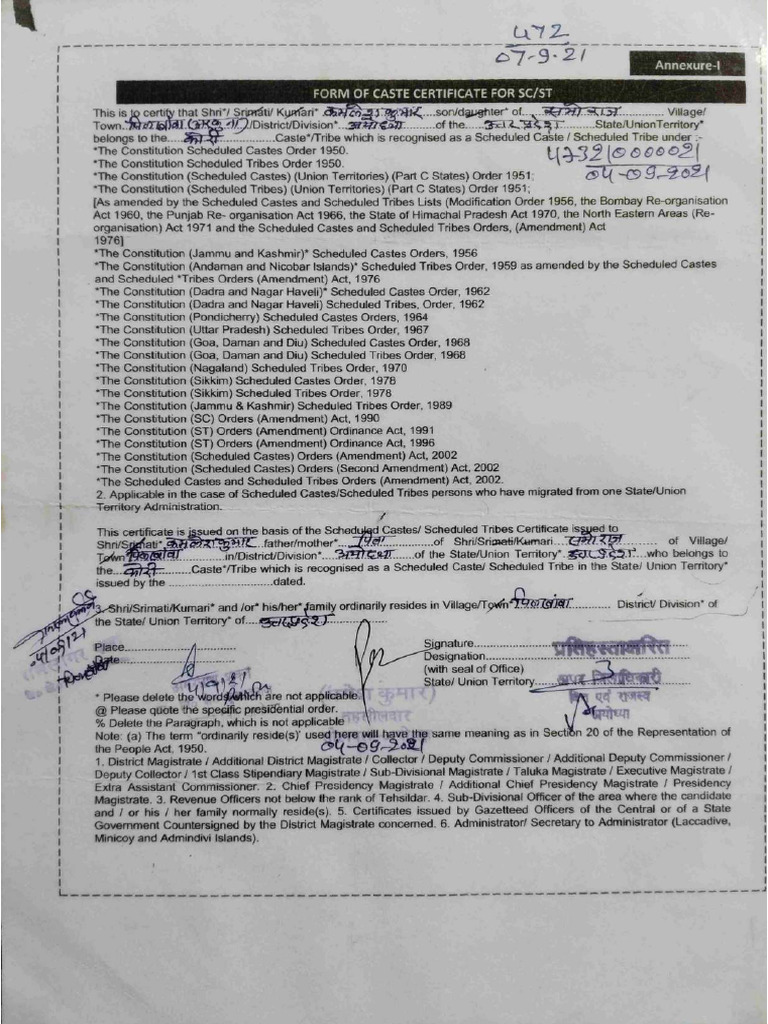 472
07-9-21
Annexure-I
FORM OF CASTE CERTIFICATE FOR SC/ST
This is to certify that Shri*/ Srimati/ Kumari* कमलेश कुमार son/daughter* of राज Village/
Town /District/Division* अयोध्या of the उत्तर प्रदेश State/UnionTerritory*
belongs to the कोरी Caste*/Tribe which is recognised as a Scheduled Caste / Scheduled Tribe under :-
*The Constitution Scheduled Castes Order 1950.
*The Constitution Scheduled Tribes Order 1950.
04-09-2021
*The Constitution (Scheduled Castes) (Union Territories) (Part C States) Order 1951;
*The Constitution (Scheduled Tribes) (Union Territories) (Part C States) Order 1951;
[As amended by the Scheduled Castes and Scheduled Tribes Lists (Modification Order 1956, the Bombay Re-organisation
Act 1960, the Punjab Re- organisation Act 1966, the State of Himachal Pradesh Act 1970, the North Eastern Areas (Re-
organisation) Act 1971 and the Scheduled Castes and Scheduled Tribes Orders, (Amendment) Act
1976]
*The Constitution (Jammu and Kashmir)* Scheduled Castes Orders, 1956
*The Constitution (Andaman and Nicobar Islands)* Scheduled Tribes Order, 1959 as amended by the Scheduled Castes
and Scheduled *Tribes Orders (Amendment) Act, 1976
*The Constitution (Dadra and Nagar Haveli)* Scheduled Castes Order, 1962
*The Constitution (Dadra and Nagar Haveli) Scheduled Tribes, Order, 1962
*The Constitution (Pondicherry) Scheduled Castes Orders, 1964
*The Constitution (Uttar Pradesh) Scheduled Tribes Order, 1967
*The Constitution (Goa, Daman and Diu) Scheduled Castes Order, 1968
*The Constitution (Goa, Daman and Diu) Scheduled Tribes Order, 1968
*The Constitution (Nagaland) Scheduled Tribes Order, 1970
*The Constitution (Sikkim) Scheduled Castes Order, 1978
*The Constitution (Sikkim) Scheduled Tribes Order, 1978
*The Constitution (Jammu & Kashmir) Scheduled Tribes Order, 1989
*The Constitution (SC) Orders (Amendment) Act, 1990
*The Constitution (ST) Orders (Amendment) Ordinance Act, 1991
*The Constitution (ST) Orders (Amendment) Ordinance, 1996
*The Constitution (Scheduled Castes) Orders (Amendment) Act, 2002
*The Constitution (Scheduled Castes) Orders (Second Amendment) Act, 2002
*The Scheduled Castes and Scheduled Tribes Orders (Amendment) Act, 2002.
2. Applicable in the case of Scheduled Castes/Scheduled Tribes persons who have migrated from one State/Union
Territory Administration.
This certificate is issued on the basis of the Scheduled Castes/ Scheduled Tribes Certificate issued to
Shri/Srimati* कमलेश कुमार father/mother* पिता of Shri/Srimati/Kumari राज of Village/
Town in/District/Division* अयोध्या of the State/Union Territory* उत्तर प्रदेश who belongs to
the कोरी Caste*/Tribe which is recognised as a Scheduled Caste/ Scheduled Tribe in the State/ Union Territory*
issued by the dated.
3. Shri/Srimati/Kumari* and /or* his/her* family ordinarily resides in Village/Town* District/ Division* of
the State/ Union Territory* of उत्तर प्रदेश
Place
Date
Signature
Designation
(with seal of Office)
State/ Union Territory
प्रतिहस्ताक्षरित
अपर जिलाधिकारी
वित्त एवं राजस्व
अयोध्या
* Please delete the words which are not applicable.
@ Please quote the specific presidential order.
% Delete the Paragraph, which is not applicable
कुमार)
तहसीलदार
Note: (a) The term "ordinarily reside(s)' used here will have the same meaning as in Section 20 of the Representation of
the People Act, 1950.
04-09-2021
1. District Magistrate / Additional District Magistrate / Collector / Deputy Commissioner / Additional Deputy Commissioner /
Deputy Collector / 1st Class Stipendiary Magistrate / Sub-Divisional Magistrate / Taluka Magistrate / Executive Magistrate /
Extra Assistant Commissioner. 2. Chief Presidency Magistrate / Additional Chief Presidency Magistrate / Presidency
Magistrate. 3. Revenue Officers not below the rank of Tehsildar. 4. Sub-Divisional Officer of the area where the candidate
and / or his / her family normally reside(s). 5. Certificates issued by Gazetteed Officers of the Central or of a State
Government Countersigned by the District Magistrate concerned. 6. Administrator/ Secretary to Administrator (Laccadive,
Minicoy and Admindivi Islands).